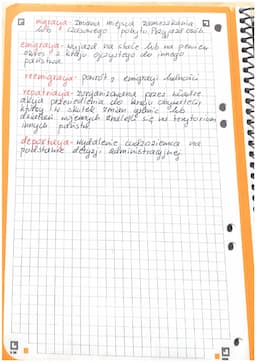 migracja - zmiana miejsca zamieszkania
lub czasowego pobytu. Przyjazd osób
emigracja - wyjazd na stałe lub na pewien
okres z kraju ojczystego do innego
państwa
reemigracja - powrót z emigracji ludności
repatriacja - zorganizowana przez władze
akcja przesiedlenia do kraju obywateli,
którzy w skutek zmian granic lub
działań wojennych znaleźli się na terytorium
innych państw.
deportacja - wydalenie cudzoziemca na
podstawie decyzji administracyjnej